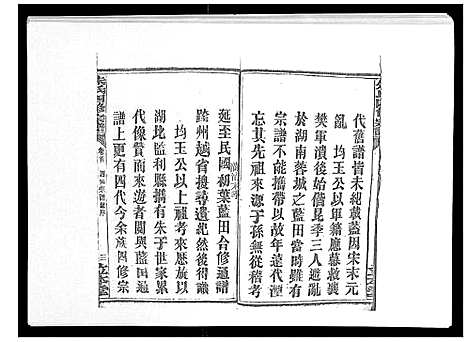 代舊譜皆未紹載蓋因宋末元
亂
均玉公以軍籍應募救襄
樊軍潰後始偕昆季三人避亂
於湖南蓉城之藍田當時雖有
宗譜不能攜帶以故年遠代湮
忘其先祖來源于孫無從稽考
延至民國初葉藍田合修通譜
跨州越省搜尋遺紀然後得識
均玉公以上祖考來歷旅以
湖北監利縣購有朱于世家累
代像贊而來遊者閱與藍田通
譜上更有四代今余族四修宗
朱氏四修宗譜
卷首
三